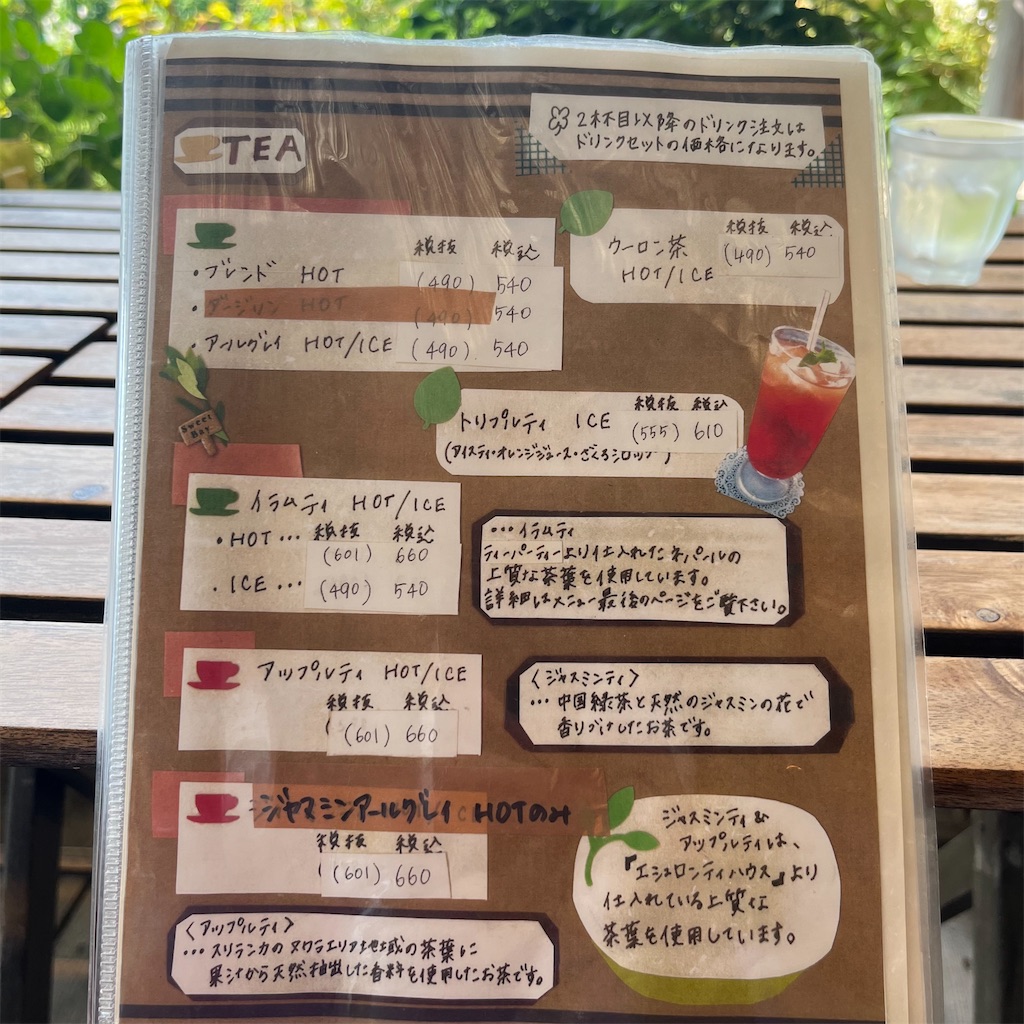 TEA
2杯目以降のドリンク注文は
ドリンクセットの価格になります。
税抜 税込
・ブレンド HOT (490) 540
・ダージリン HOT (490) 540
・アールグレイ HOT/ICE (490) 540
税抜 税込
ウーロン茶 (490) 540
HOT/ICE
Sweet
Bay
税抜 税込
トリプルティ ICE (555) 610
(アイスティ・オレンジジュース・ざくろシロップ)
イラムティ HOT/ICE
・HOT… 税抜 税込
(601) 660
・ICE… (490) 540
…イラムティ
ティーパーティーより仕入れたネパールの
上質な茶葉を使用しています。
詳細はメニュー最後のページをご覧下さい。
アップルティ HOT/ICE
税抜 税込
(601) 660
〈ジャスミンティ〉
…中国緑茶と天然のジャスミンの花で
香りづけしたお茶です。
ジャスミンアールグレイ HOTのみ
税抜 税込
(601) 660
ジャスミンティ&
アップルティは、
『エシュロンティハウス』より
仕入れている上質な
茶葉を使用しています。
〈アップルティ〉
…スリランカのヌワラエリア地域の茶葉に
果汁から天然抽出した香料を使用したお茶です。